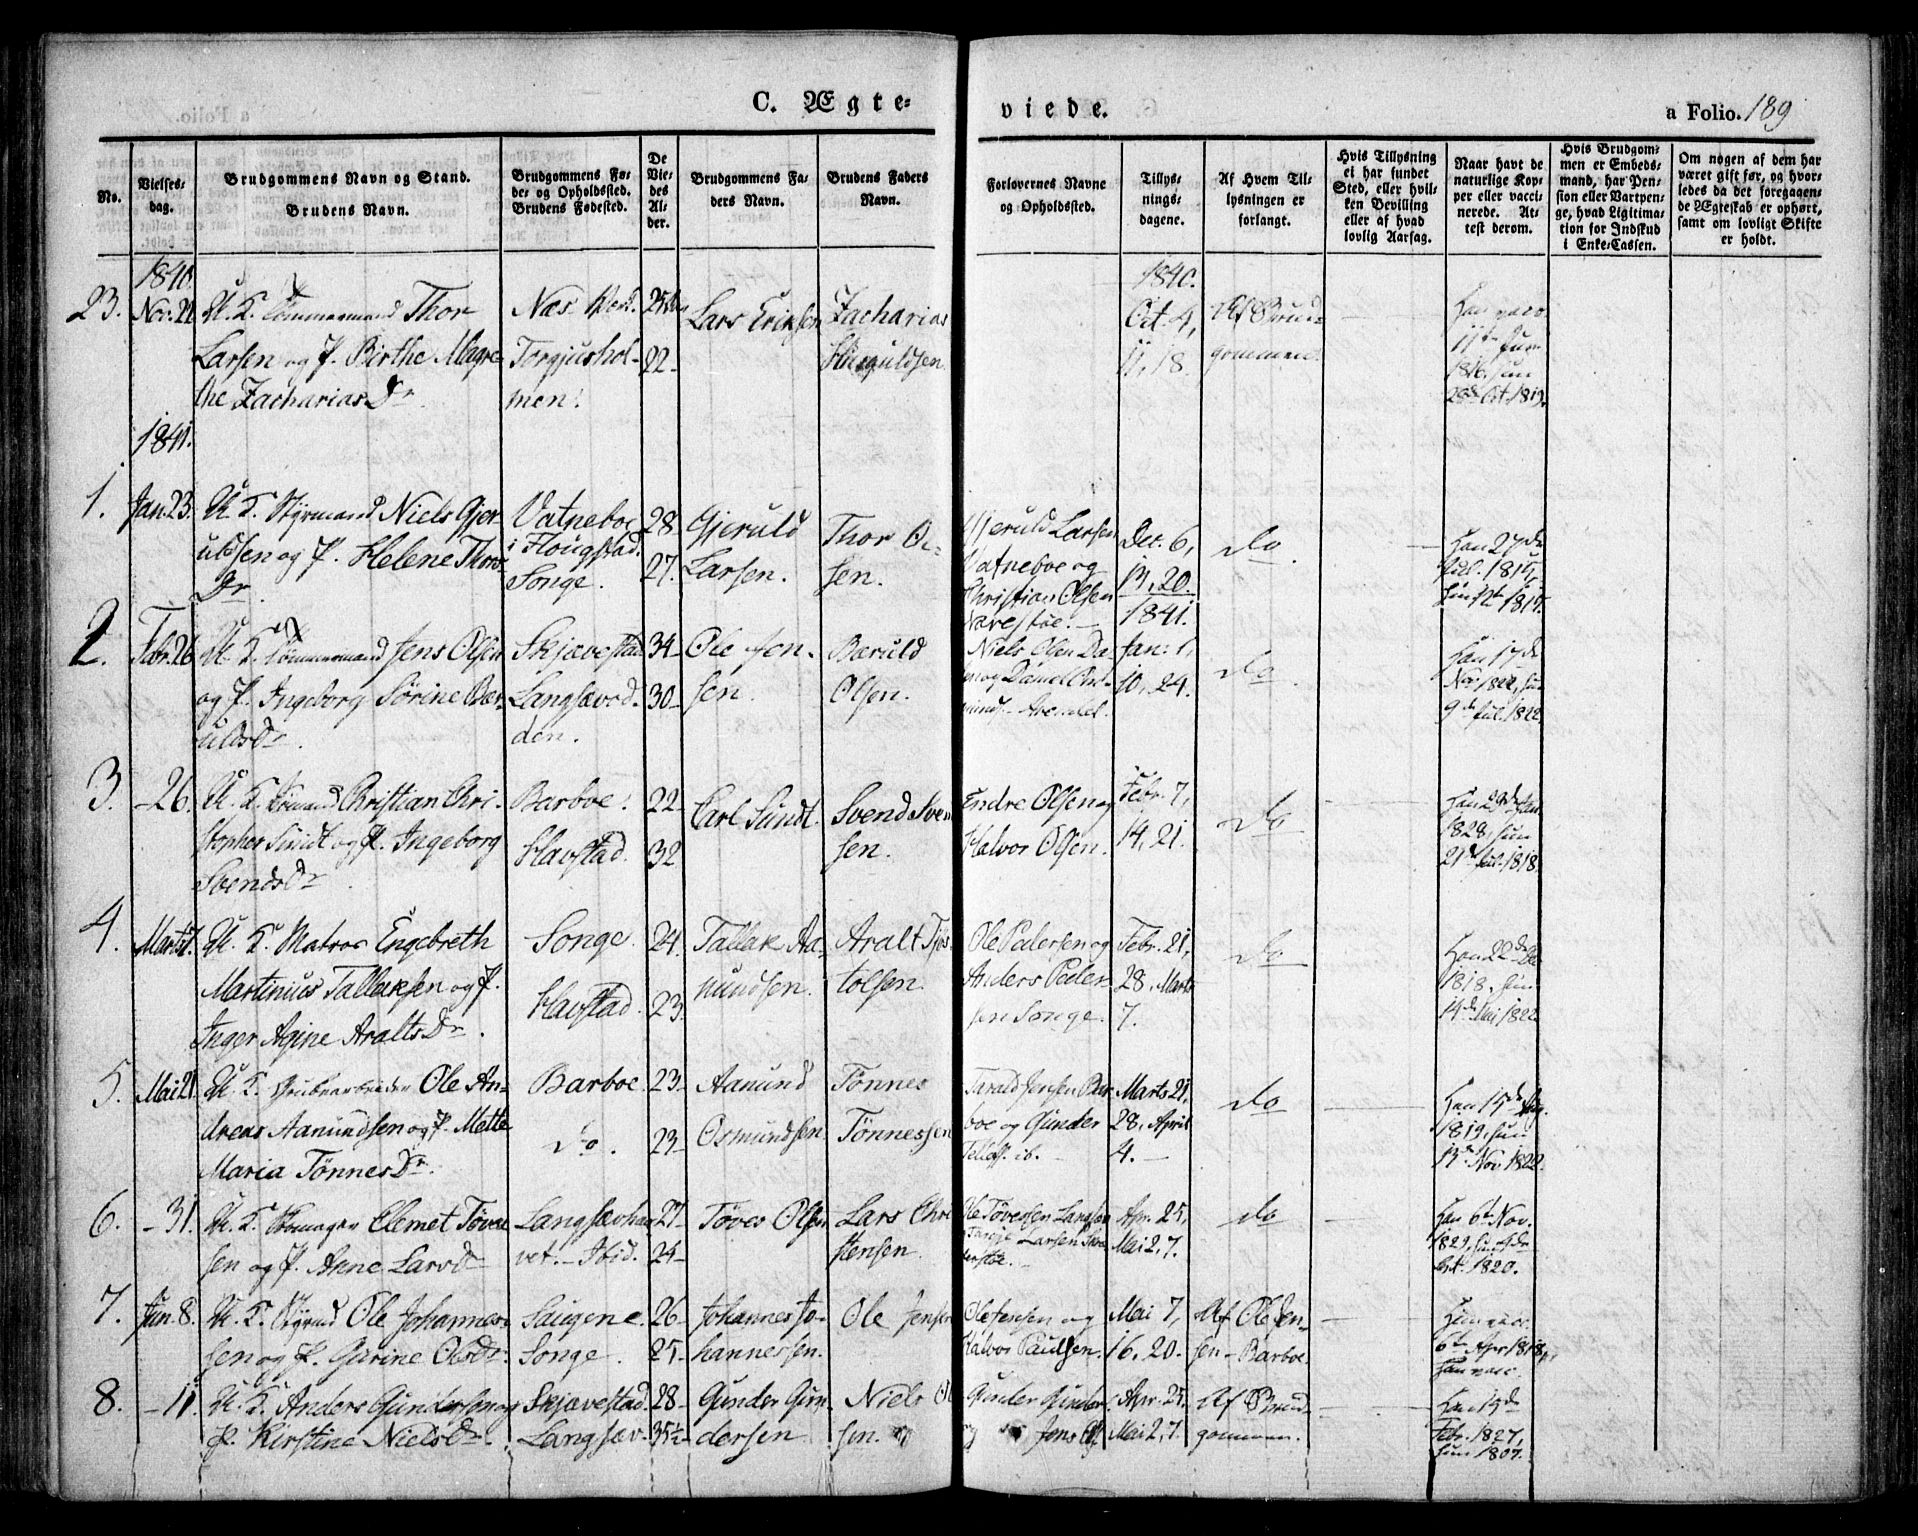 C. Ægte-
viede.
a Folio. 189
No.
Vielses-
dag.
Brudgommens Navn og Stand.
Brudens Navn.
Brudgommens Fø-
de- og Opholdssted.
Brudens Fødested.
De
Vie-
des
Al-
der.
Brudgommens Fa-
ders Navn.
Brudens Faders
Navn.
Forlovernes Navne
og Opholdssted.
Tillys-
nings-
dagene.
Af Hvem Til-
lysningen er
forlangt.
Hvis Tillysning
ei har fundet
Sted, eller hvil-
ken Bevilling
eller af hvad
lovlig Aarsag.
Naar havt de
naturlige Kop-
per eller vacci-
nerede. At-
test derom.
Hvis Brudgom-
men er Embeds-
mand, har Pen-
sion eller Vartpen-
ge, hvad Legitima-
tion for Indskud
i Enke-Cassen.
Om nogen af dem har
været gift før, og hvor-
ledes da det foregagen-
de Ægteskab er ophørt,
samt om lovligt Skifte
er holdt.
1840.
23. Nov. 21 U. K. Tømmermand Thor
Larsen og P. Birthe Magre
the Zacharias Dr.
Næs Værk.
Torgjushol-
men.
22
Lars Eriksen
Zacharias
1840.
Oct. 4,
11, 18.
Af Brud-
gommen.
Han vacc
11te Jun
1816, hun
28de Oct. 1819.
1841.
1. Jan. 23. U. K. Styrmand Niels Gjer-
uldsen og P. Helene Thors
Dr.
Vatneboe
i Flougstad.
Songe.
28
27.
Gjeruld
Larsen.
Thor Ol-
sen.
Gjeruld Larsen
Vatneboe og
Christian Olsen
Dec. 6,
13, 20.
1841.
Do
Han 27de
Jul. 1815,
2. Febr. 26 U. K. Tømmermand Jens Olsen
og P. Ingeborg Sørine Bær-
ulds Dr.
Skjævestad
Langsæved-
den.
34
30
Ole Jen-
sen.
Bæruld
Olsen.
Niels Olsen
Arendal.
Jan: 1,
10, 24.
Do
Han 17de
Nov. 1822, hun
9de Jul. 1822.
3. – 26. U. K. Christian Chri-
stopher Sundt og P. Ingeborg
Svends Dr.
Barboe.
Havstad.
22
32
Carl Sundt.
Svend Sven
sen.
Endre Olsen og
Halvor Olsen.
Febr. 7,
14, 21.
Do
Han 29de Jan
1828, hun
21de Jul. 1818.
4. U. K. Matros Engebreth
Martinius Tallaksen og P.
Inger Agine Aralts Dr.
Songe.
Havstad.
24.
23.
Tallak Aa-
nundsen.
Aralt Tjøs-
tolsen.
Ole Pedersen og
Anders Peder-
sen Songe.
Febr. 21,
28. Marts
7.
Do
Han 22de De
1818, hun
14de Mai 1822
5. Mai 21. U. K. Grubearbeider Ole An-
dreas Aanundsen og P. Mette
Maria Tønnes Dr.
Barboe
do.
23
23
Aanund
Osmundsen
Tønnes
Tønnessen
Tarald Jensen Bar
boe og Gunder
ib.
Marts 21,
28. April
4.
Do
Han 15de Aug.
1819, hun
13de Nov. 1822.
6. – 31. U. K. Clemet Tøves
sen og P. Anne Lars Dr
Langsævha
vet. – Ibid.
27
24
Tøves Olsen
Lars Chri
stensen.
Ole Tøvesen Langsæv
Larsen
Apr. 25,
Mai 2, 7.
Do
Han 6te Nov.
1829, hun 4de
Oct. 1820.
7. Jun. 8. U. K. Styrmd Ole Johannes-
sen og P. Gurine Ols Dr.
Saugene.
Songe.
26
25
Johannes Jo-
hannessen.
Ole Jensen
Ole Jensen og
Halvor Paulsen.
Mai 7,
16, 20.
Af Ole Jen-
sen – Barboe.
Hun vacc.
6te Apr. 1818,
Han vacc.
8. – 11. U. K. Anders Gundersen og
P. Kirstine Niels Dr.
Skjævestad.
Langsæv.
28
35½
Gunder Gun
dersen
Niels Ol
sen.
Gunder Gunder-
Jens
Apr. 25.
Mai 2, 7.
Af Brud-
gommen.
Han 15de
Febr. 1827,
hun 1807.